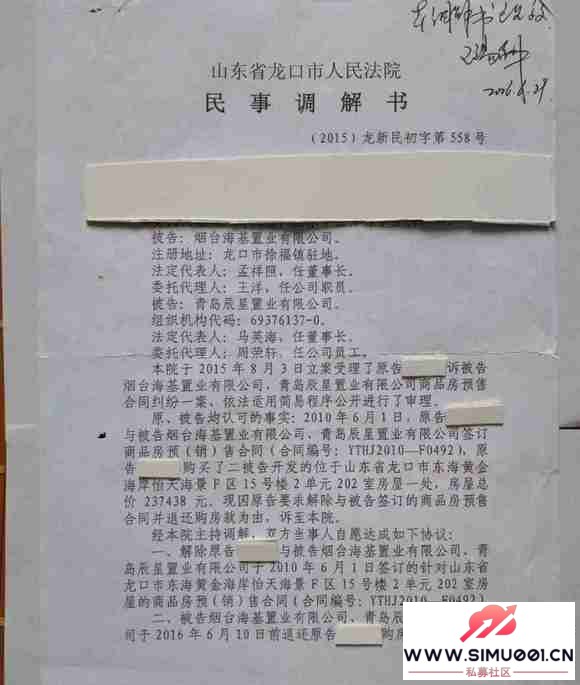 2016.
山东省龙口市人民法院
民事调解书
（2015）龙新民初字第558号
被告：烟台海基置业有限公司。
注册地址：龙口市徐福镇驻地。
法定代表人：孟祥照，任董事长。
委托代理人：王洋，任公司职员。
被告：青岛辰星置业有限公司。
组织机构代码：69376137-0。
法定代表人：马英海，任董事长。
委托代理人：周荣轩，任公司员工。
本院于2015年8月3日立案受理了原告 诉被告
烟台海基置业有限公司、青岛辰星置业有限公司商品房预售
合同纠纷一案、依法适用简易程序公开进行了审理。
原、被告均认可的事实：2010年6月1日，原告
与被告烟台海基置业有限公司、青岛辰星置业有限公司签订
商品房预（销）售合同（合同编号：YTHJ2010-F0492），原
告 购买了二被告开发的位于山东省龙口市东海黄金
海岸怡天海景F区15号楼2单元202室房屋一处，房屋总
价237438元。现因原告要求解除与被告签订的商品房预售
合同并退还购房款为由，诉至本院。
经本院主持调解，双方当事人自愿达成如下协议：
一、解除原告 与被告烟台海基置业有限公司、青
岛辰星置业有限公司于2010年6月1日签订的针对山东省
龙口市东海黄金海岸怡天海景F区15号楼2单元202室房
屋的商品房预（销）售合同（合同编号：YTHJ2010-F0492）
二、被告烟台海基置业有限公司、青岛辰
司于2016年6月10日前退还原告 购房
WWW.SIMU001.CN
私募社区